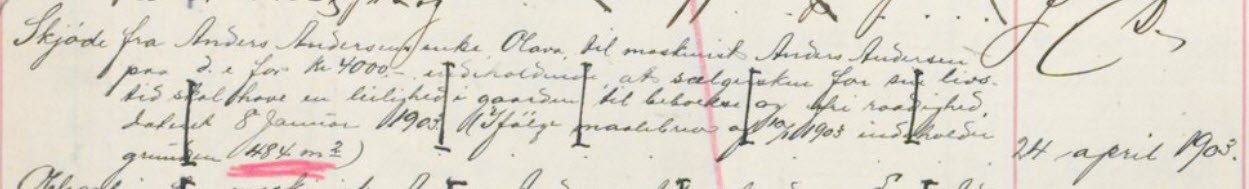 Skjøde fra Anders Andersens enke Olava til maskinist Anders Andersen
paa d. e for Kr 4000.- indeholdende at sælgersken for sin livs-
tid skal have en leilighed i gaarden til beboelse og fri raadighed,
dateret 8 Januar 1903. (Ifølge maalebrev af 1903 indeholder
grunden 484 m²)
24 april 1903.